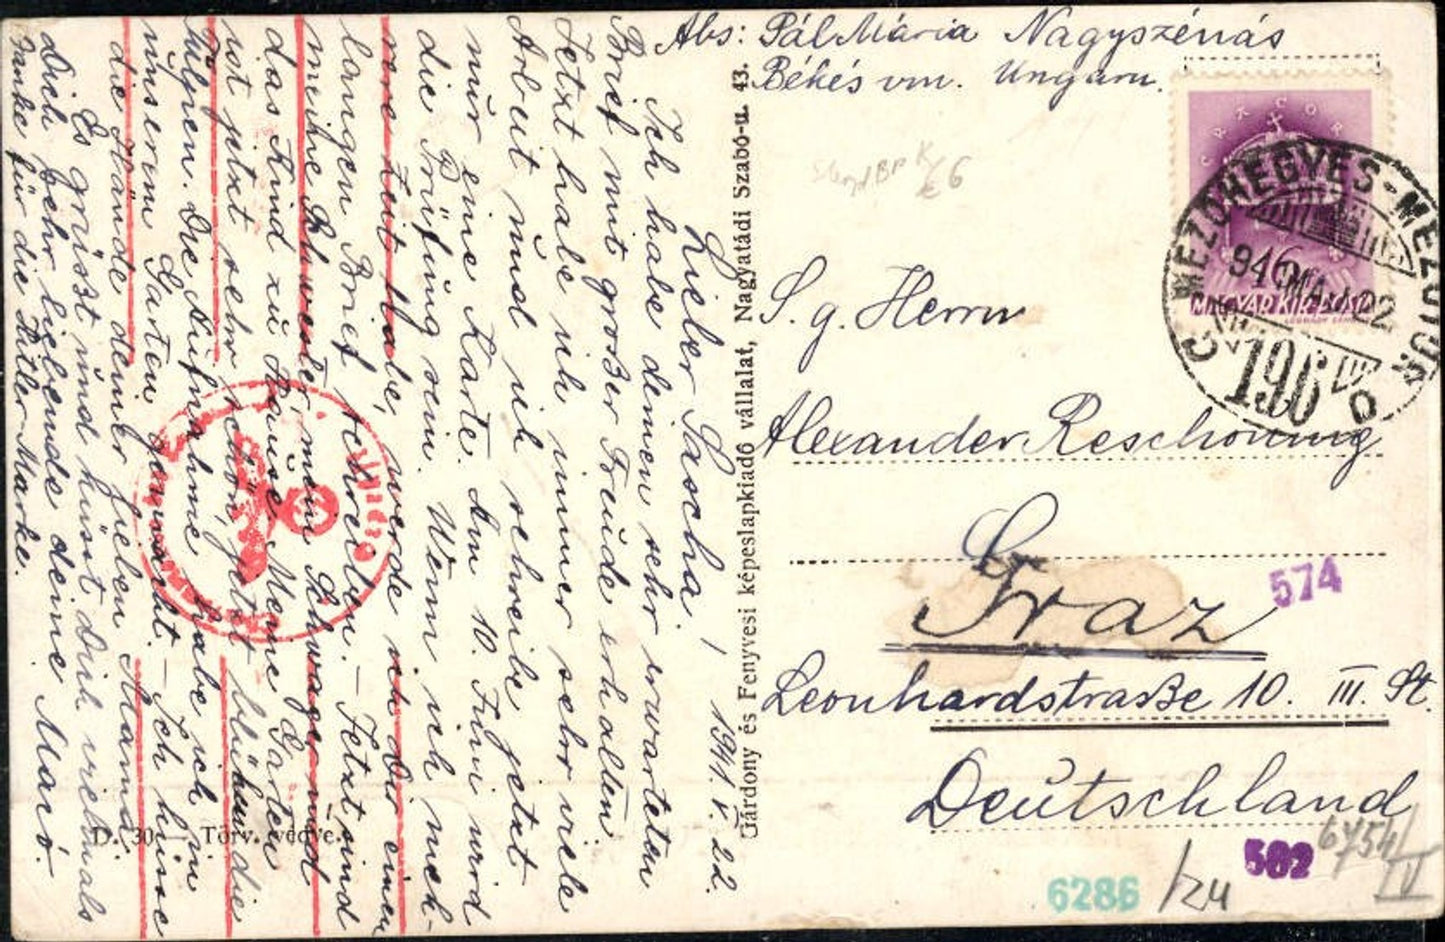 Abs: Pál Mária Nagyszénás
Békés vm. Ungarn.
MAGYAR KIR. POSTA
MEZŐHEGYES-MEZŐTÚR
941 MÁJ 22
196
S. g. Herrn
Alexander Reschounig
Graz
Leonhardstraße 10. III. St.
Deutschland
574
502
6754/IV
6286
/24
Gárdony és Fenyvesi képeslapkiadó vállalat, Nagyatádi Szabó-u. 43.
D. 30. Törv. védve.
1941. V. 22.
Lieber Sascha!
Ich habe deinen sehr erwarteten
Brief mit großer Freude erhalten.
Jetzt habe ich immer sehr viele
Arbeit und ich schreibe jetzt
nur eine Karte. Am 10. Juni wird
die Prüfung sein. Wenn ich meh-
rere Zeit habe, werde ich dir einen
langen Brief schreiben. – Jetzt sind
meine Schwester, mein Schwager und
das Kind zu Hause. Meine Garten
ist jetzt sehr schön, jetzt blühen die
Tulpen. Die Aufnahme habe ich in
unserem Garten gemacht. – Ich küsse
die Hände deiner fielen Mama.
Es grüßt und küsst Dich vielmals
Dich sehr liebende deine Macó.
Danke für die Hitler-Marke.